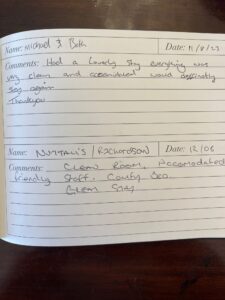 Name: Michael & Beth Date: 11/9/23
Comments: Had a lovely stay everything was
very clean and accomodated would deffinatly
stay again.
Thankyou
Name: NUTTALLS / RICHARDSON Date: 12/08
Comments: Clean Room, Accomodated
friendly Staff, Comfy Bed.
Clean Stay